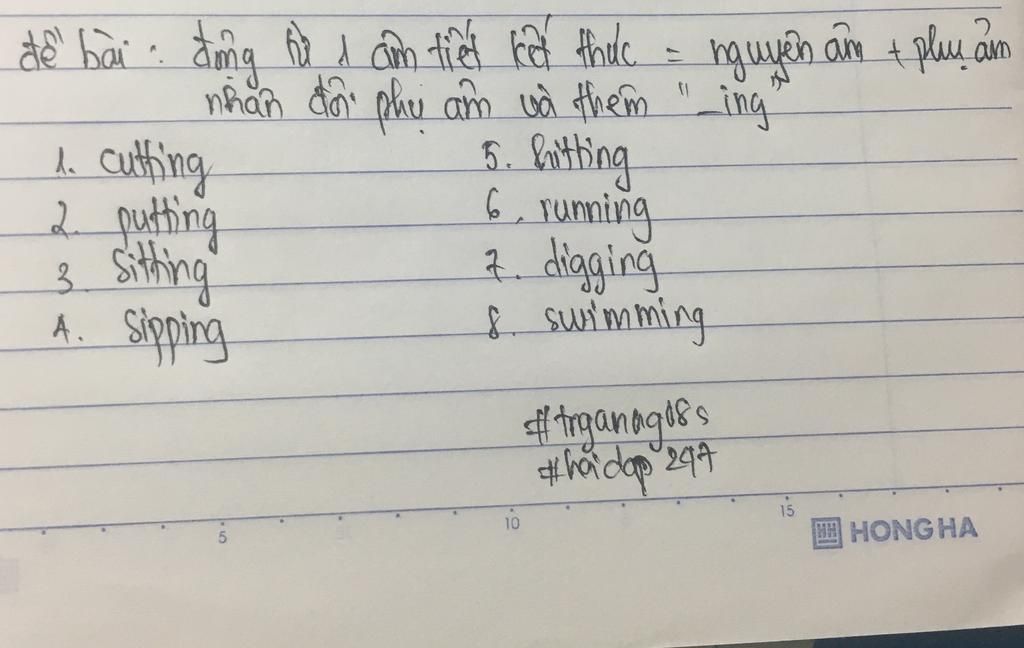 đề bài : động từ 1 âm tiết kết thúc = nguyên âm + phụ âm
nhân đôi phụ âm và thêm "_ing"
1. cutting
2. putting
3. sitting
4. sipping
5. hitting
6. running
7. digging
8. swimming
#trganng08s
#hoidap 247
5 10 15
HH HONG HA